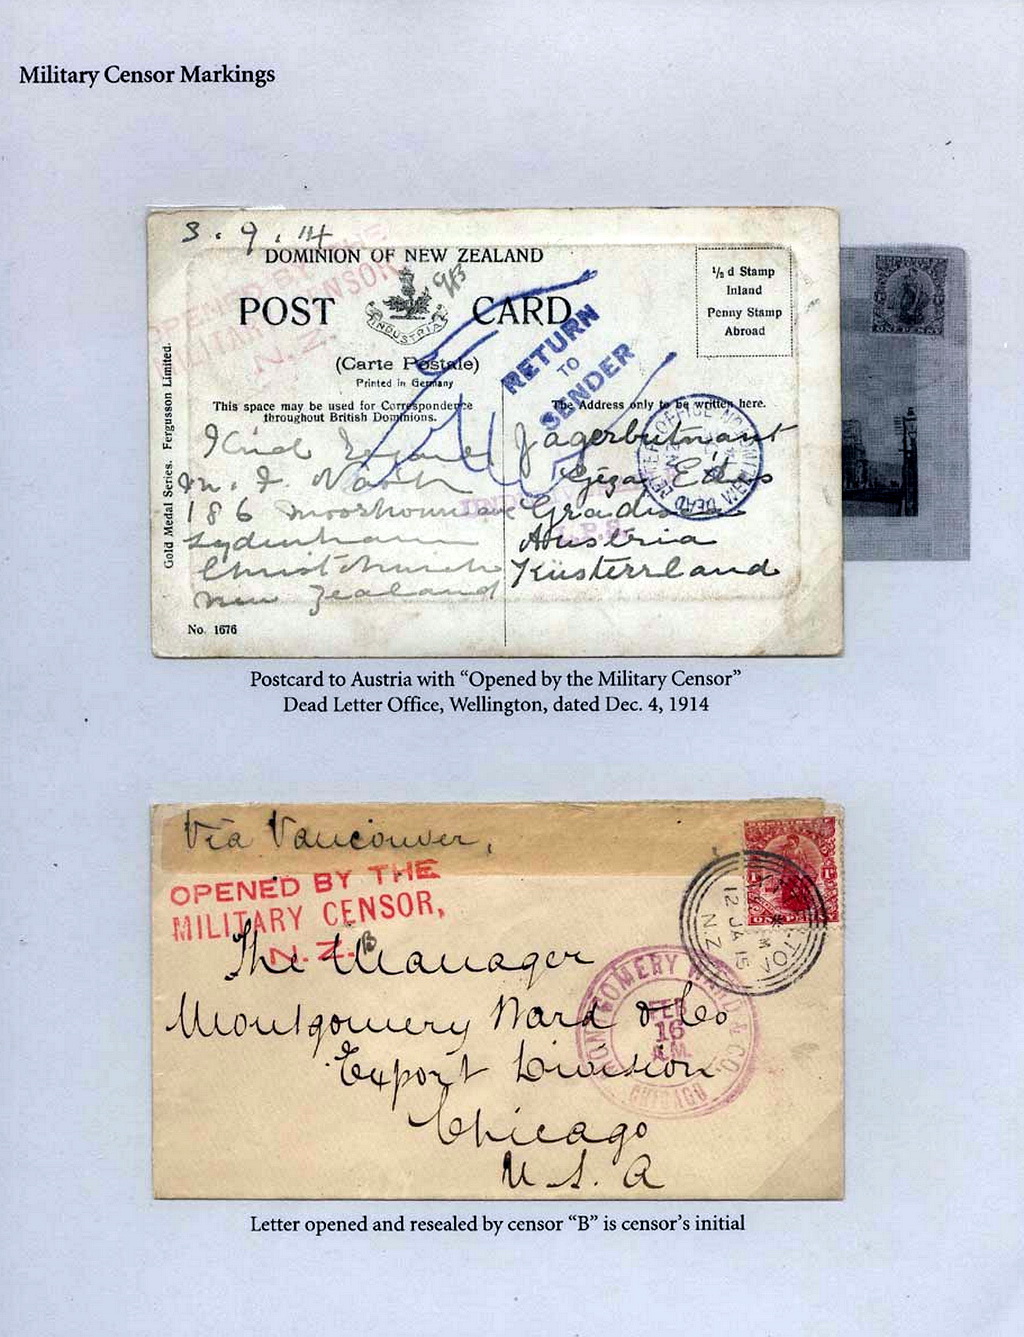 Military Censor Markings
3.9.14
OPENED BY THE
MILITARY CENSOR
N.Z.
DOMINION OF NEW ZEALAND
POST CARD
INDUSTRIA
(Carte Postale)
Printed in Germany
½ d Stamp
Inland
Penny Stamp
Abroad
RETURN
TO
SENDER
This space may be used for Correspondence
throughout British Dominions.
The Address only to be written here.
Gold Medal Series. Fergusson Limited.
Kind Regards
186
Sydenham
Christchurch
New Zealand
Géza
Gradisca
Austria
Küsterrland
DEAD LETTER OFFICE
No. 1676
Postcard to Austria with “Opened by the Military Censor”
Dead Letter Office, Wellington, dated Dec. 4, 1914
Via Vancouver,
OPENED BY THE
MILITARY CENSOR,
N.Z.
B
12 JA 15
N.Z
ONE PENNY
The Manager
Montgomery Ward & Co
Export Division
Chicago
U.S.A
MONTGOMERY WARD & CO.
FEB
16
A.M.
CHICAGO
Letter opened and resealed by censor “B” is censor’s initial